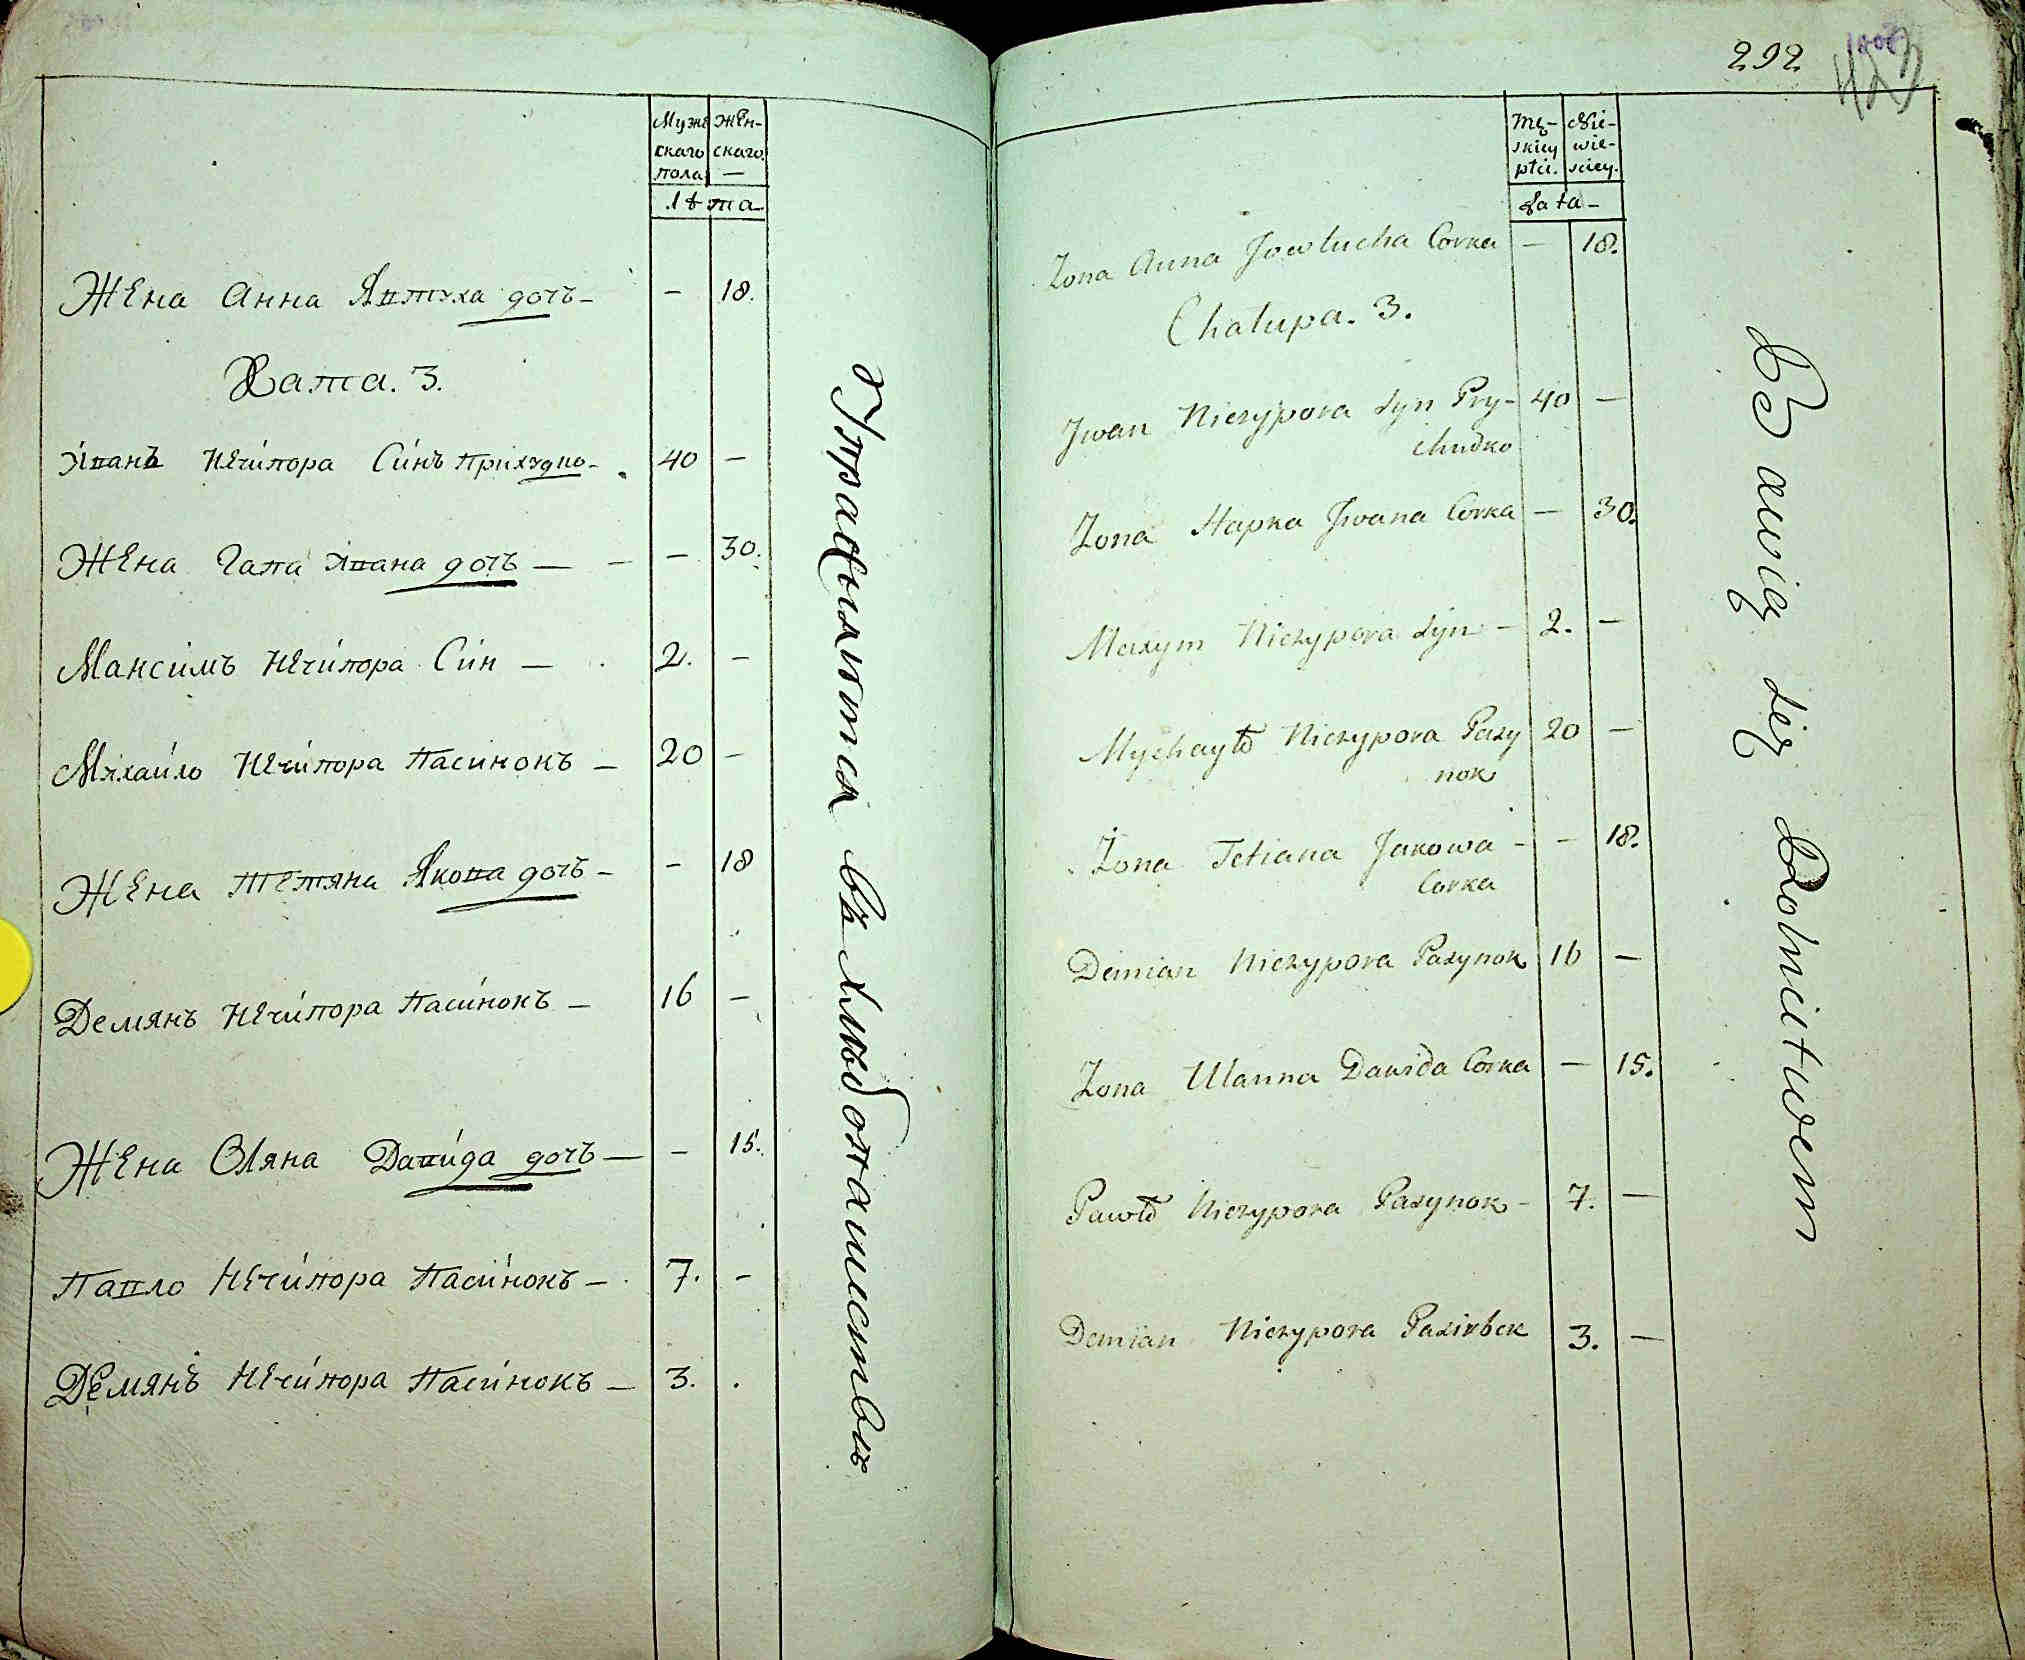 Мужескаго пола Женскаго —
Лѣта
Жена Анна Явтуха дочъ — — 18.
Хата. 3.
Іванъ Нечипора Синъ Приходко — 40 —
Жена Гапа Івана дочъ — — 30.
Максимъ Нечипора Син — 2. —
Михайло Нечипора Пасинокъ — 20 —
Жена Тетяна Якова дочъ — — 18
Демянъ Нечипора Пасинокъ — 16 —
Жена Оляна Давида дочъ — — 15.
Павло Нечипора Пасинокъ — 7. —
Демянъ Нечипора Пасинокъ — 3. .
Упражняются въ хлѣбопашествѣ
292
423
Mę-
skiey
płci.
Nie-
wie-
sciey.
Lata —
Żona Anna Jowtucha Corka — 18.
Chałupa. 3.
Jwan Niczypora Syn Pry- 40 —
chudko
Żona Hapka Jwana Corka — 30.
Maxym Niczypora Syn — 2. —
Mychayło Niczypora Pasy 20 —
nok
Żona Tetiana Jakowa — — 18.
Corka
Demian Niczypora Pasynok 16 —
Żona Ulanna Dawida Corka — 15.
Pawło Niczypora Pasynok — 7. —
Demian Niczypora Pasirbek 3. —
Bawią się Rolnictwem